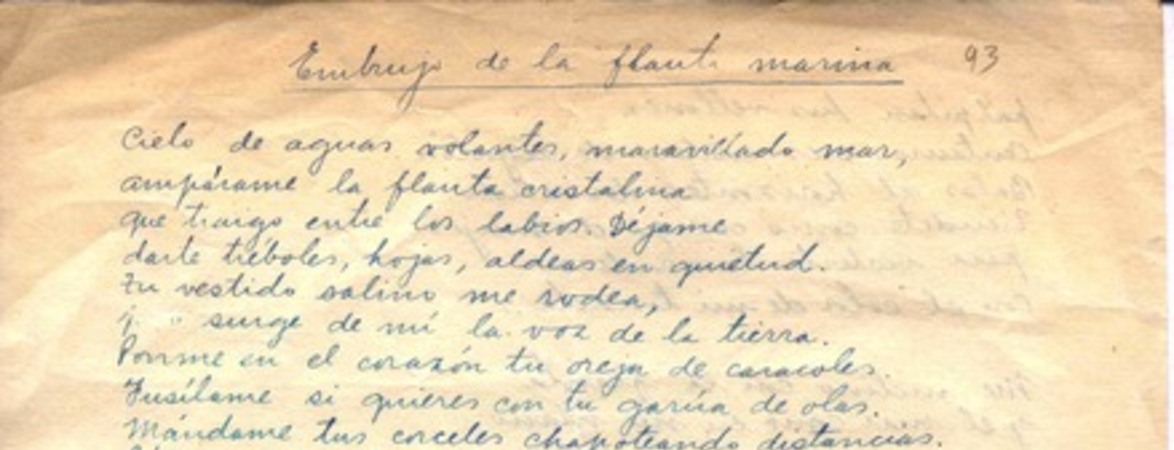 Embrujo de la flauta marina 93
Cielo de aguas volantes, maravillado mar,
ampárame la flauta cristalina
que traigo entre los labios. Déjame
darte tréboles, hojas, aldeas en quietud.
Tu vestido salino me rodea,
surge de mí la voz de la tierra.
Ponme en el corazón tu oreja de caracoles.
Fusílame si quieres con tu garúa de olas.
Mándame tus corceles chapoteando distancias.